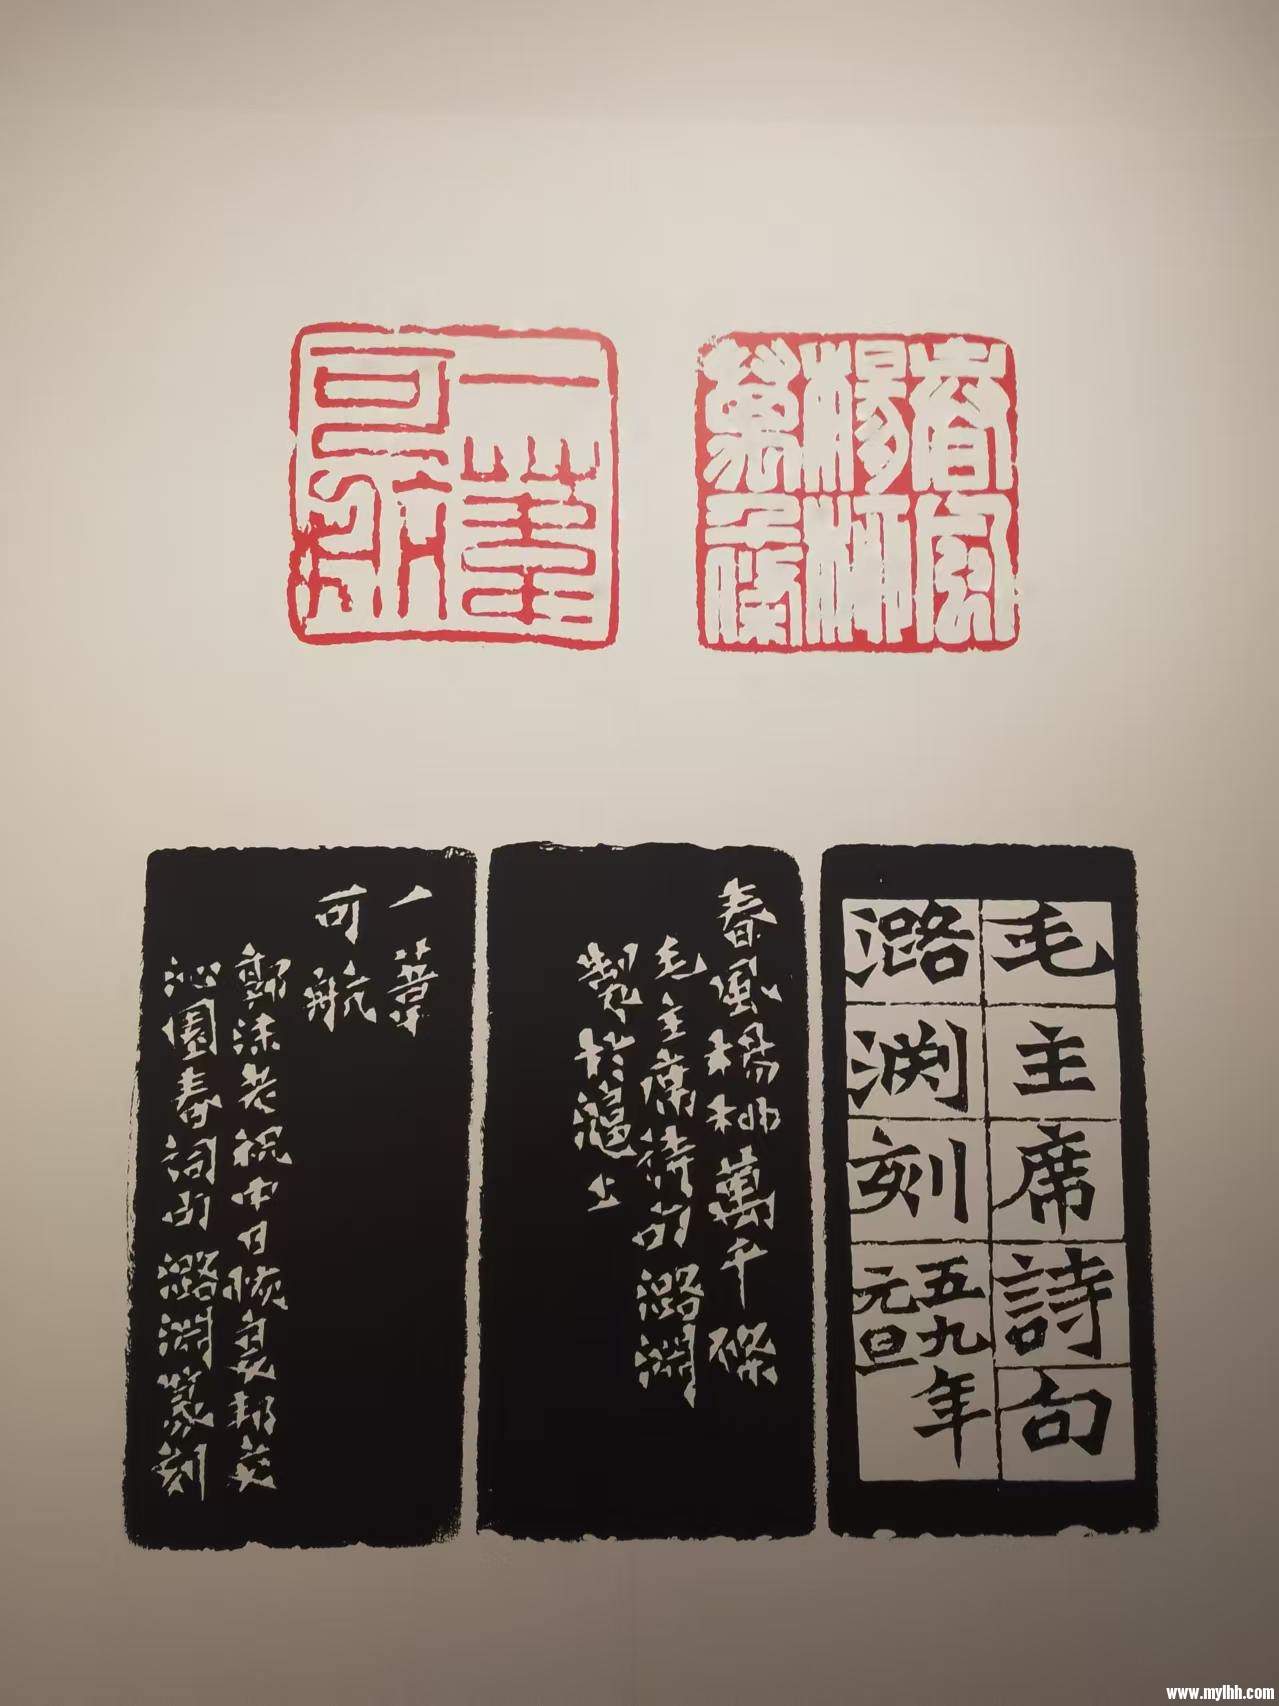 春風
楊柳
萬千條
一葦
可航
毛主席詩句
潞渊刻
五九年
元旦
春風楊柳萬千條
毛主席詩句潞渊
製於滬上
一葦
可航
郭沫老祝中日恢复邦交
沁園春詞句潞渊篆刻
www.mylhh.com